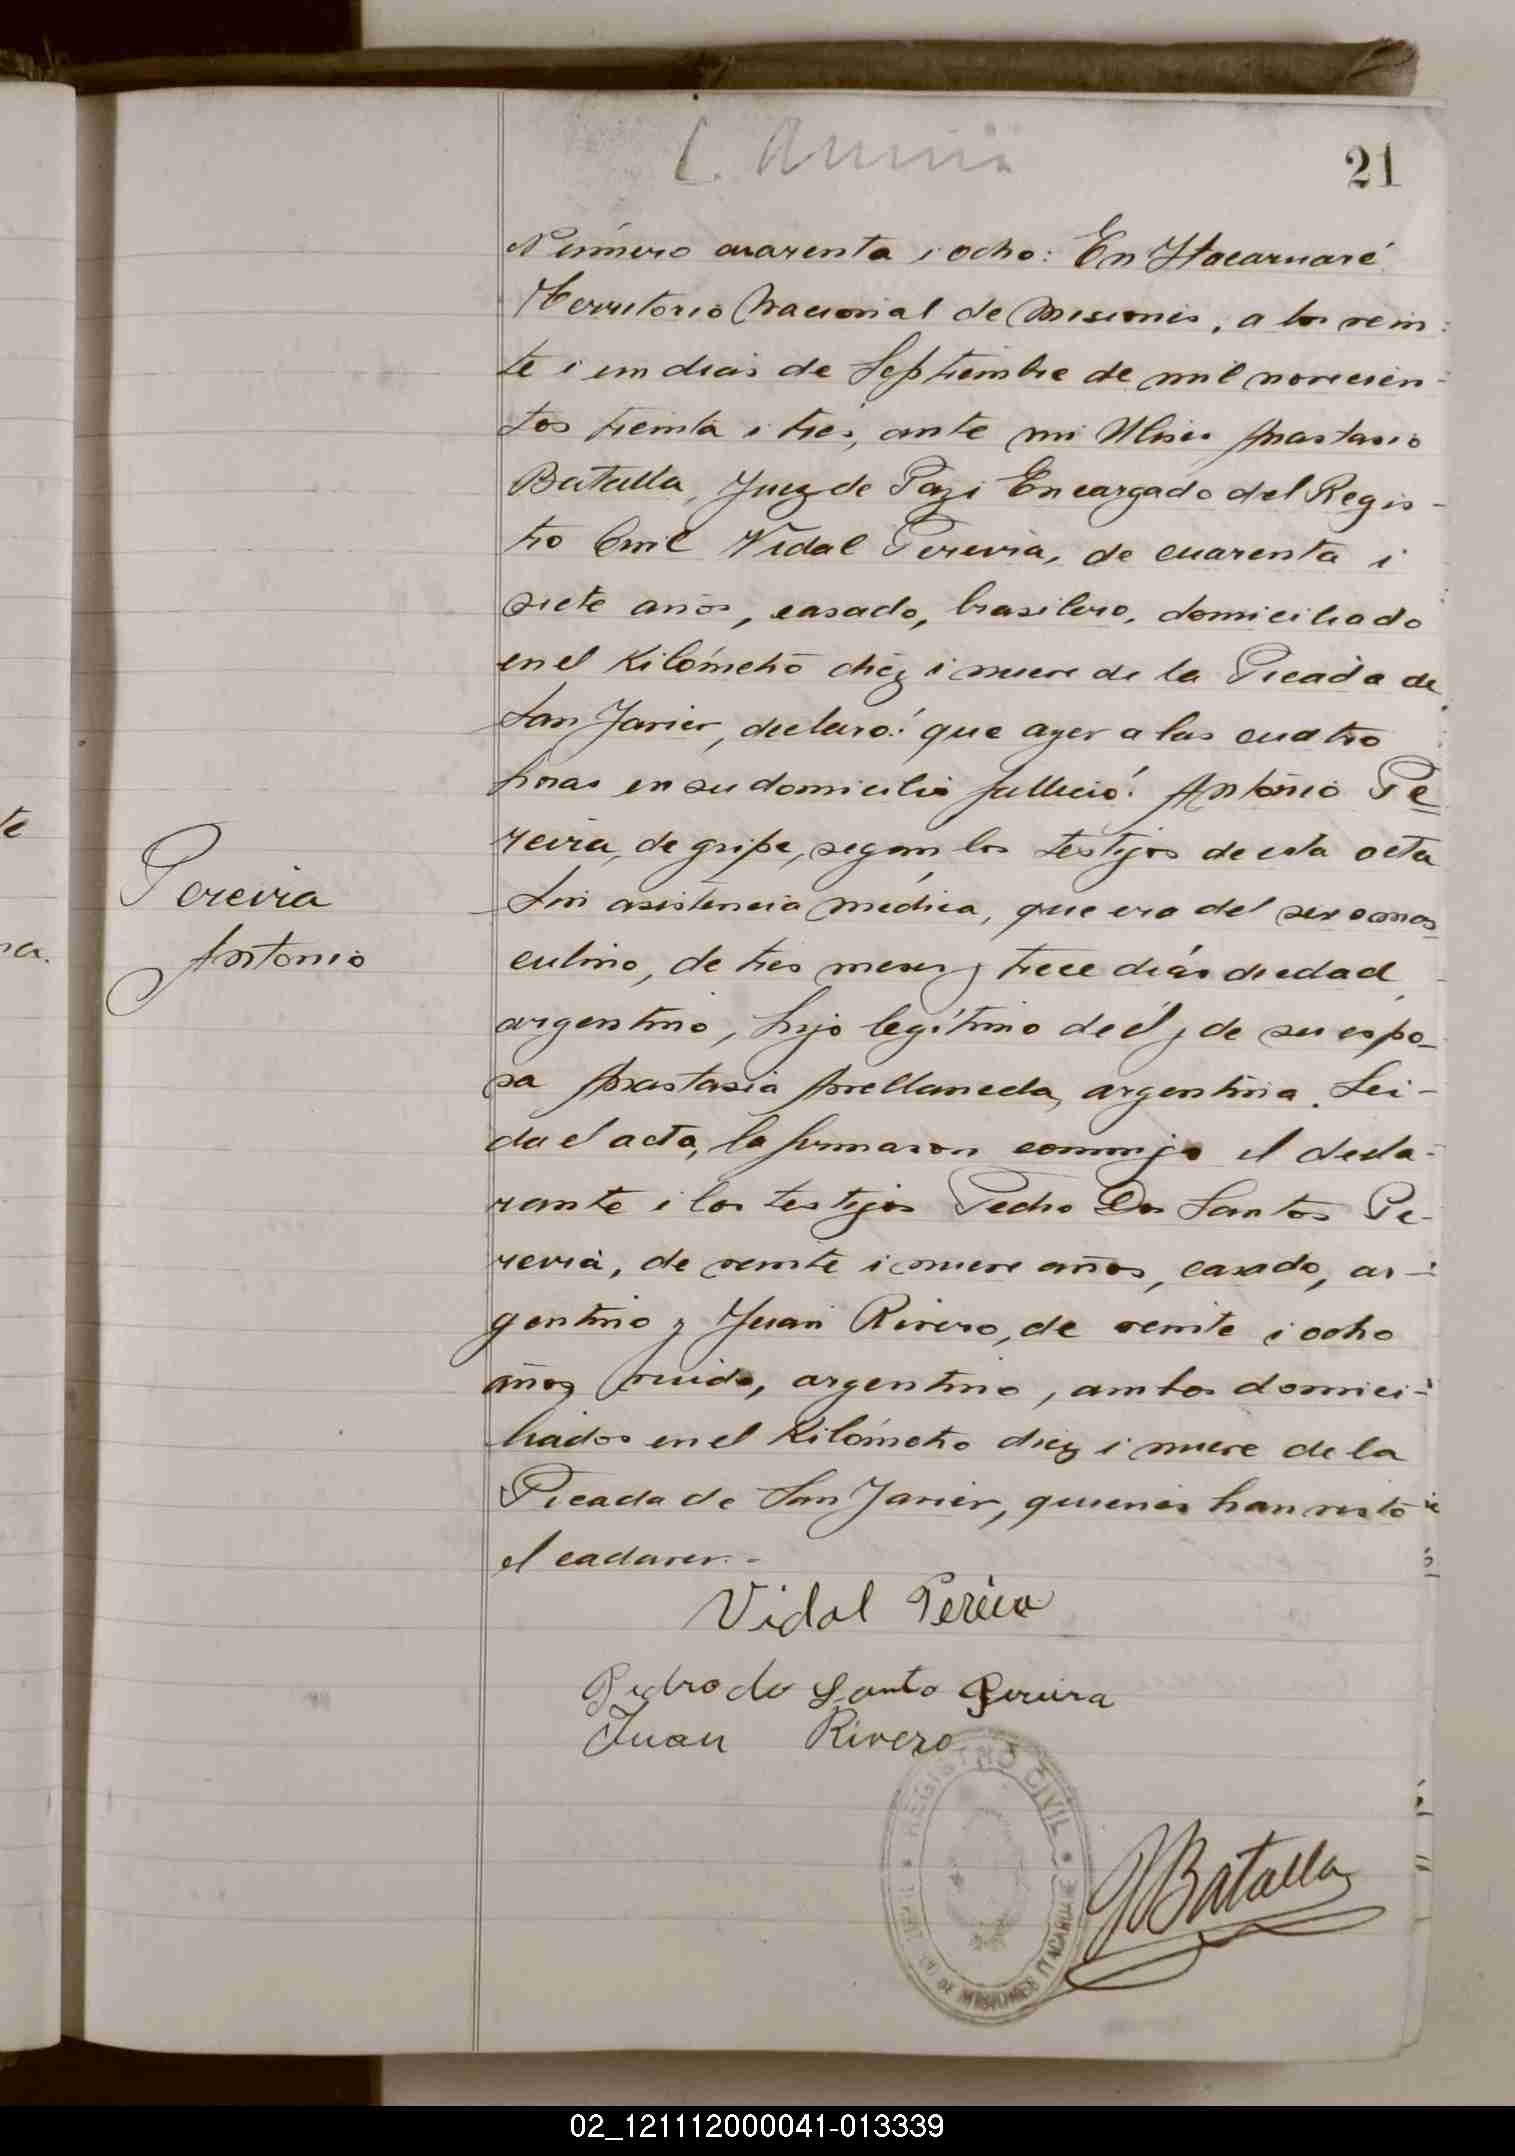 21
Número cuarenta i ocho: En Itacaruaré
Territorio Nacional de Misiones, a los vein-
te i un dias de Septiembre de mil novecien-
tos treinta i tres, ante mi Ulises Anastasio
Batalla, Juez de Paz i Encargado del Regis-
tro Civil Vidal Pereira, de cuarenta i
siete años, casado, brasilero, domiciliado
en el Kilómetro diez i nueve de la Picada de
San Javier, declaró: que ayer a las cuatro
horas en su domicilio falleció: Antonio Pe
reira, de gripe, segun los testijos de esta acta
Sin asistencia médica, que era del sexo mas
culino, de tres meses y trece dias de edad
argentino, hijo legítimo de él y de su espo-
sa Anastasia Avellaneda, argentina. Lei-
da el acta, la firmaron conmigo el decla-
rante i los testijos Pedro Dos Santos Pe-
reira, de veinte i nueve años, casado, ar-
gentino y Juan Rivero, de veinte i ocho
años, viudo, argentino, ambos domici-
liados en el Kilómetro diez i nueve de la
Picada de San Javier, quienes han visto
el cadaver.-
Pereira
Antonio
Vidal Pereira
Pedro do Santo Pereira
Juan Rivero
REGISTRO CIVIL
DE MISIONES ITACARUARE
Batalla
te
na.
02_121112000041-013339